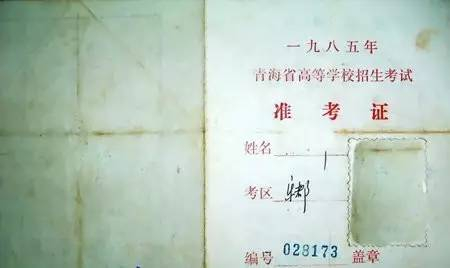 一九八五年
青海省高等学校招生考试
准考证
姓名
考区 乐都
编号 028173 盖章